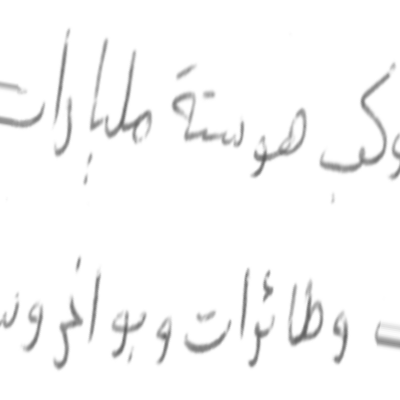 وكب هوستة مليارات
وطائرات وبواخر و